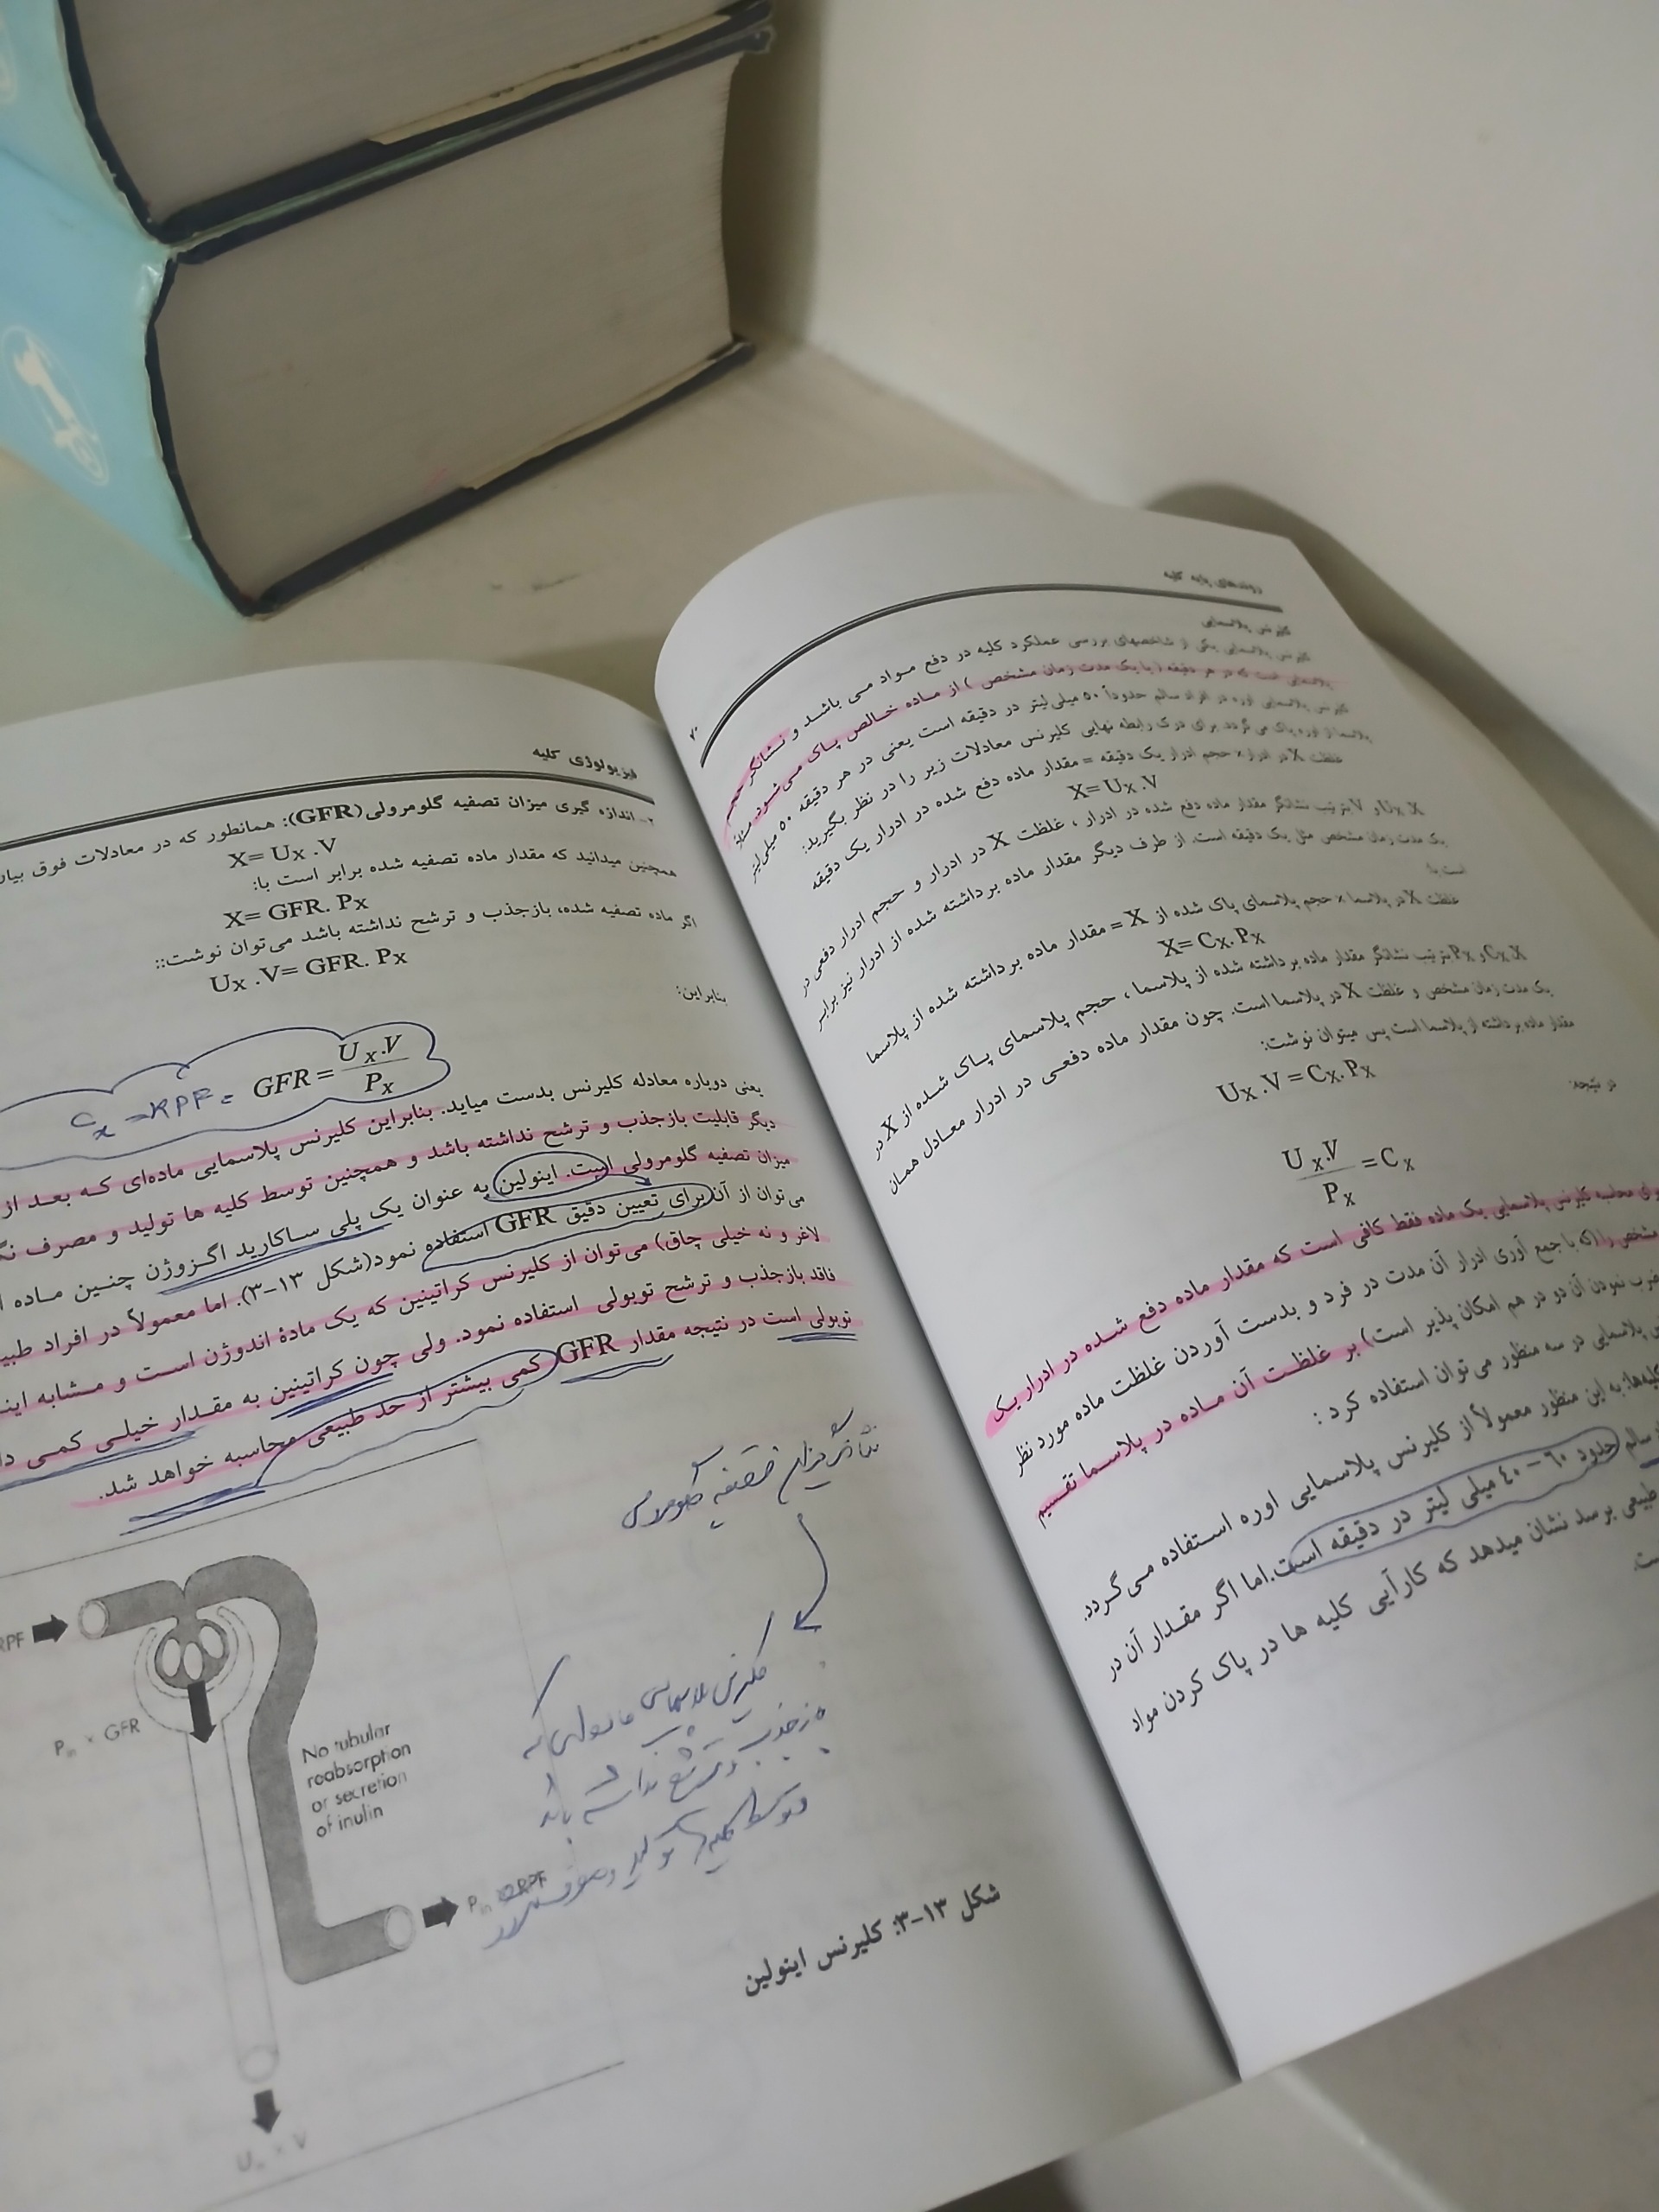 روندهای پایه کلیه
۲۰
کلیرنس پلاسمایی
کلیرنس پلاسمایی یکی از شاخصهای بررسی عملکرد کلیه در دفع مواد می باشد و نشانگر حجم
پلاسمایی است که در هر دقیقه (یا یک مدت زمان مشخص) از ماده خالص پاک می‌شود. مثلاً
کلیرنس پلاسمایی اوره در افراد سالم حدوداً ۵۰ میلی‌لیتر در دقیقه است یعنی در هر دقیقه ۵۰ میلی‌لیتر
پلاسما از اوره پاک می گردد. برای درک رابطه نهایی کلیرنس معادلات زیر را در نظر بگیرید:
غلظت X در ادرار × حجم ادرار یک دقیقه = مقدار ماده دفع شده در ادرار یک دقیقه
X= Ux .V
X، Ux و V بترتیب نشانگر مقدار ماده دفع شده در ادرار ، غلظت X در ادرار و حجم ادرار دفعی در
یک مدت زمان مشخص مثل یک دقیقه است. از طرف دیگر مقدار ماده برداشته شده از ادرار نیز برابر
است با:
غلظت X در پلاسما × حجم پلاسمای پاک شده از X = مقدار ماده برداشته شده از پلاسما
X= Cx. Px
X، Cx و Px بترتیب نشانگر مقدار ماده برداشته شده از پلاسما ، حجم پلاسمای پاک شده از X در
یک مدت زمان مشخص و غلظت X در پلاسما است. چون مقدار ماده دفعی در ادرار معادل همان
مقدار ماده برداشته از پلاسما است پس میتوان نوشت:
Ux .V = Cx. Px
در نتیجه:
Ux.V / Px = Cx
برای محاسبه کلیرنس پلاسمایی یک ماده فقط کافی است که مقدار ماده دفع شده در ادرار یک
مشخص را (که با جمع آوری ادرار آن مدت در فرد و بدست آوردن غلظت ماده مورد نظر
ضرب نمودن آن دو در هم امکان پذیر است) بر غلظت آن ماده در پلاسما تقسیم
پلاسمایی در سه منظور می توان استفاده کرد :
کلیه‌ها: به این منظور معمولاً از کلیرنس پلاسمایی اوره استفاده می‌گردد.
سالم حدود ۶۰ – ۴۰ میلی لیتر در دقیقه است. اما اگر مقدار آن در
طبیعی برسد نشان میدهد که کارآیی کلیه ها در پاک کردن مواد
است.
فیزیولوژی کلیه
۲- اندازه گیری میزان تصفیه گلومرولی (GFR): همانطور که در معادلات فوق بیان
X= Ux .V
همچنین میدانید که مقدار ماده تصفیه شده برابر است با:
X= GFR. Px
اگر ماده تصفیه شده، بازجذب و ترشح نداشته باشد می‌توان نوشت::
Ux .V= GFR. Px
بنابراین:
Cx = RPF = GFR = Ux.V / Px
یعنی دوباره معادله کلیرنس بدست میاید. بنابراین کلیرنس پلاسمایی ماده‌ای که بعد از
دیگر قابلیت بازجذب و ترشح نداشته باشد و همچنین توسط کلیه ها تولید و مصرف
میزان تصفیه گلومرولی است. اینولین به عنوان یک پلی ساکارید اگزوژن چنین ماده
می‌توان از آن برای تعیین دقیق GFR استفاده نمود (شکل ۱۳–۳). اما معمولاً در افراد
لاغر و نه خیلی چاق) می‌توان از کلیرنس کراتینین که یک مادهٔ اندوژن است و مشابه
فاقد بازجذب و ترشح توبولی استفاده نمود. ولی چون کراتینین به مقدار خیلی کمی
توبولی است در نتیجه مقدار GFR کمی بیشتر از حد طبیعی محاسبه خواهد شد.
نشانگر میزان تصفیه گلومرولی
کلیرنس پلاسمایی ماده‌ای که
بازجذب و ترشح نداشته باشد
و توسط کلیه‌ها تولید و مصرف نشود
RPF
Pin × GFR
No tubular
reabsorption
or secretion
of inulin
Pin × RPF
شکل ۱۳–۳: کلیرنس اینولین